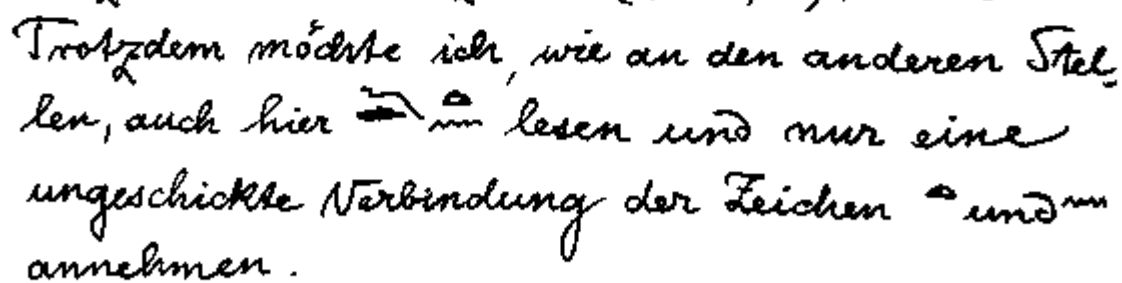 Trotzdem möchte ich, wie an den anderen Stel-
len, auch hier lesen und nur eine
ungeschickte Verbindung der Zeichen 𓏏 und 𓈖
annehmen.